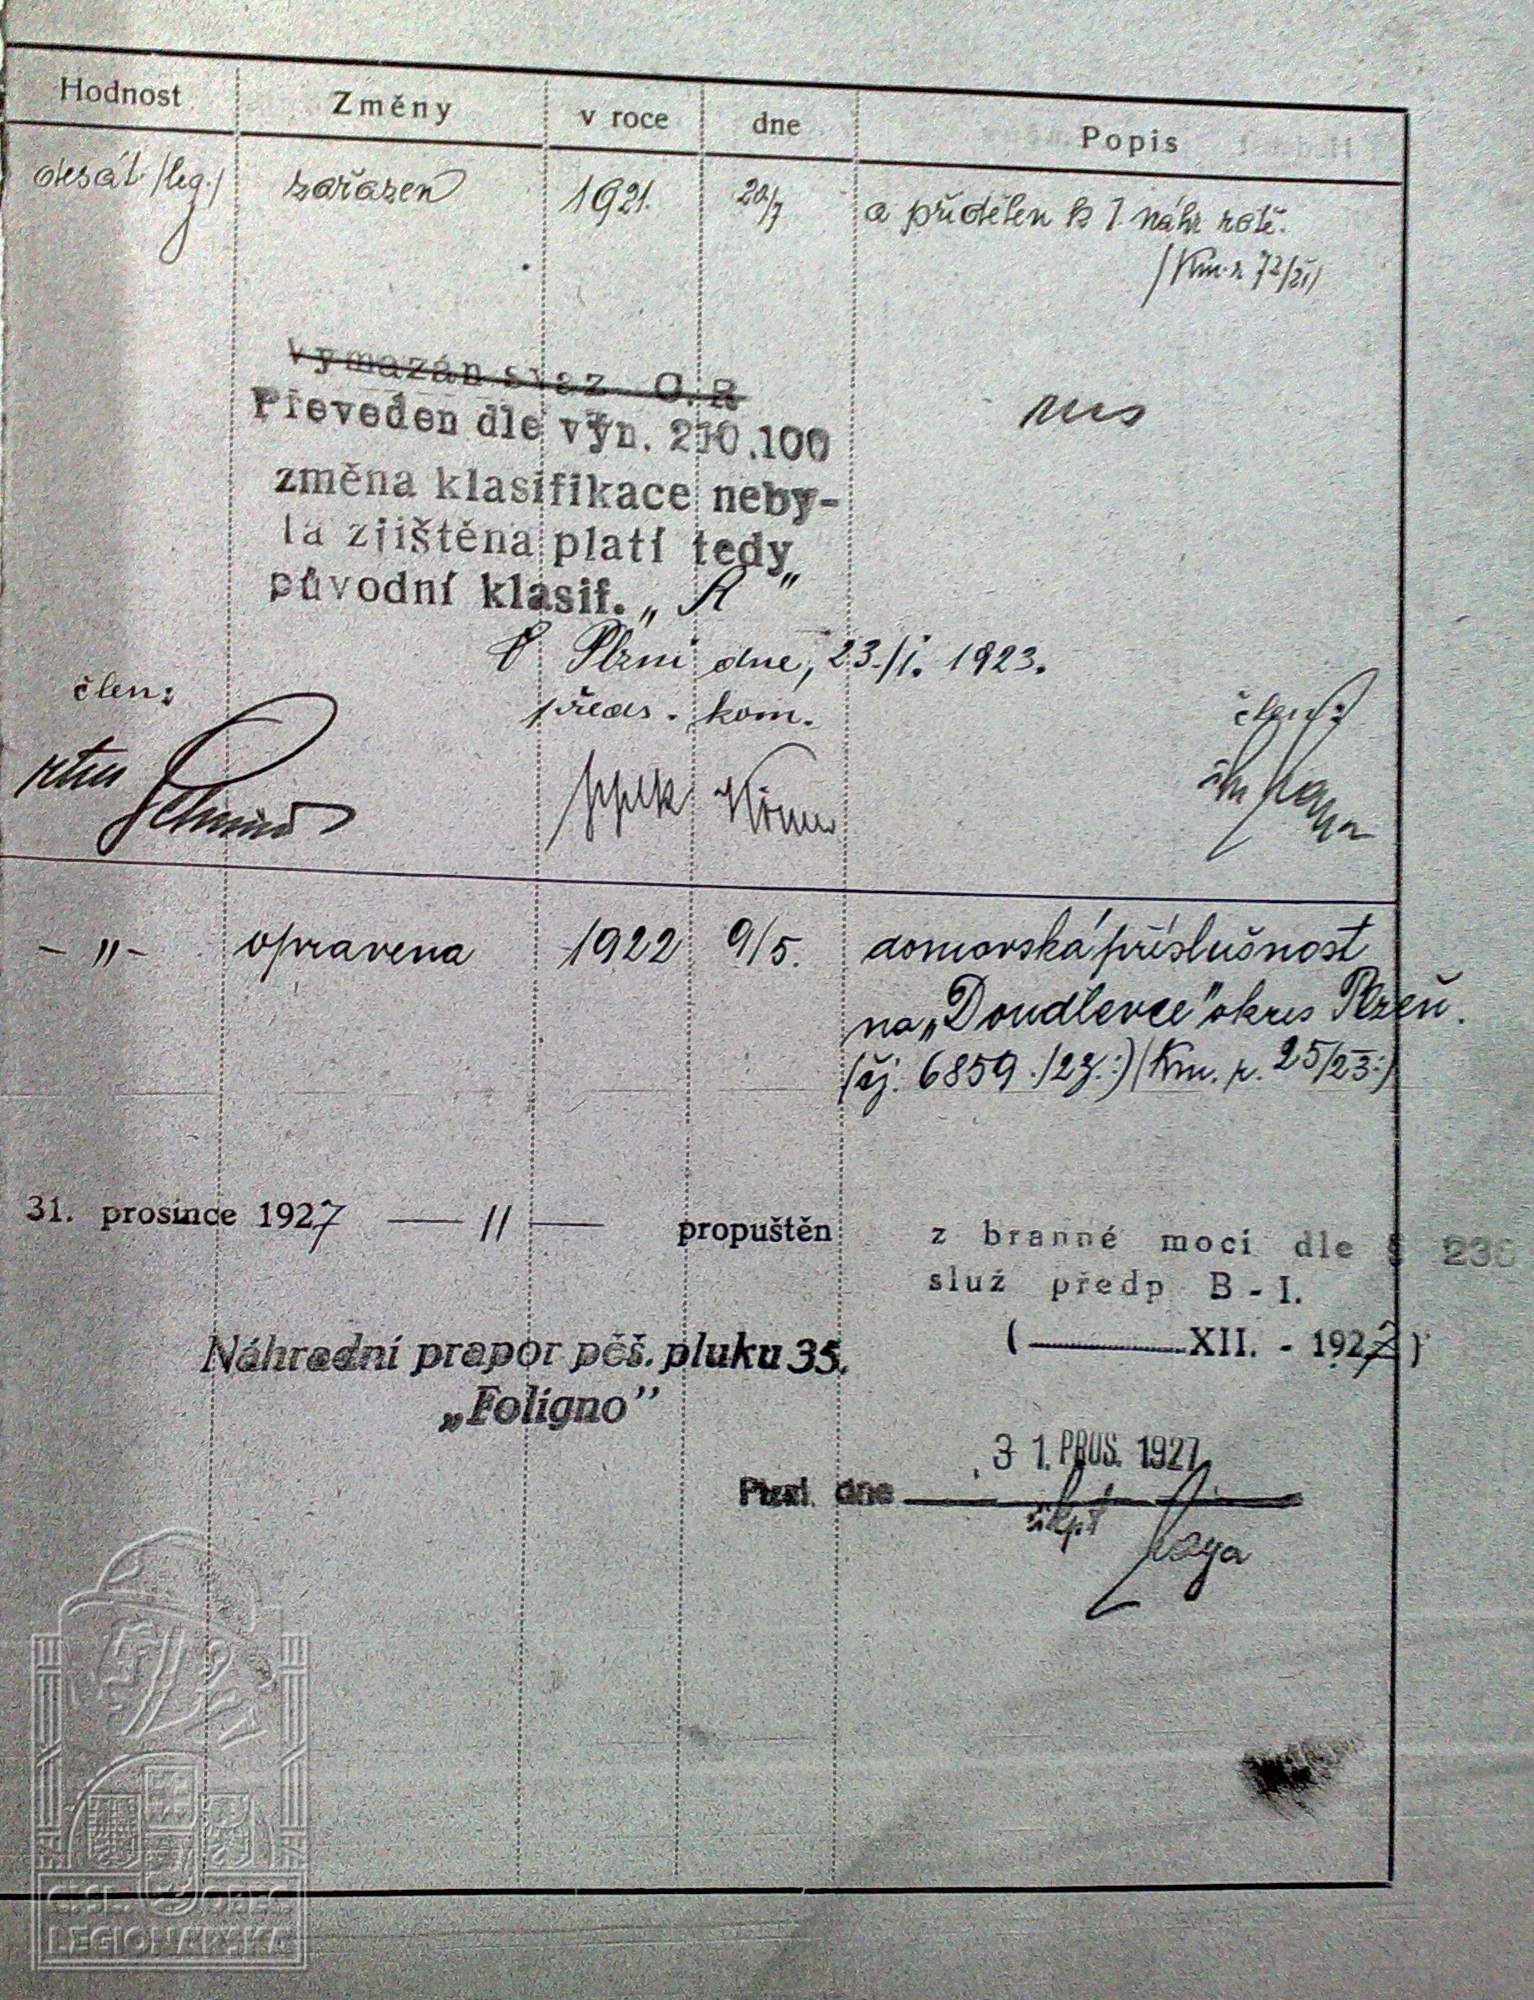 Hodnost Změny v roce dne Popis
desát. /leg./ zařazen 1921. 20/7 a přidělen k I. náhr. rotě.
/Km. r. 72/21/
Vymazán svaz O.R
Převeden dle výn. 210.100
změna klasifikace neby-
la zjištěna platí tedy
původní klasif. „A"
V Plzni dne, 23./I. 1923.
člen: předs. kom. člen:
-"- opravena 1922 9/5. domovská příslušnost
na „Doudlevce" okres Plzeň.
/čj. 6859./23.:)(Km. r. 25/23:)
31. prosince 1927 — // — propuštěn z branné moci dle § 236
služ předp B - I.
( XII. - 1927)
Náhradní prapor pěš. pluku 35.
„Foligno"
31. PROS. 1927
Plzeň dne
škpt
ČSL. OBEC
LEGIONÁŘSKÁ